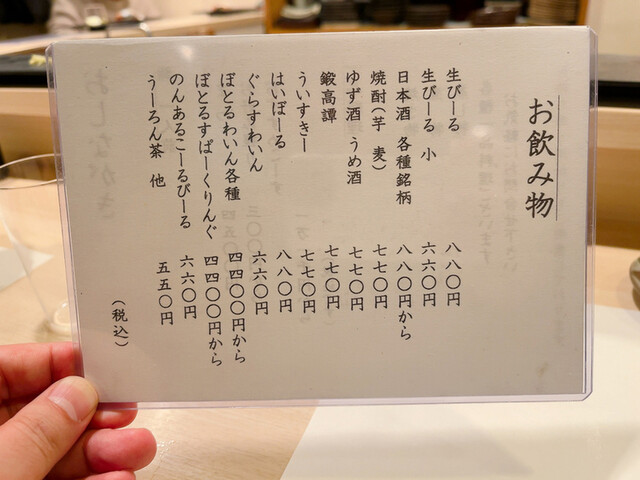 お飲み物
生びーる 八八〇円
生びーる 小 六六〇円
日本酒 各種銘柄 八八〇円から
焼酎(芋 麦) 七七〇円
ゆず酒 うめ酒 七七〇円
鍛高譚 七七〇円
ういすきー 七七〇円
はいぼーる 八八〇円
ぐらすわいん 六六〇円
ぼとるわいん各種 四四〇〇円から
ぼとるすぱーくりんぐ 四四〇〇円から
のんあるこーるびーる 六六〇円
うーろん茶 他 五五〇円
(税込)
おしながき